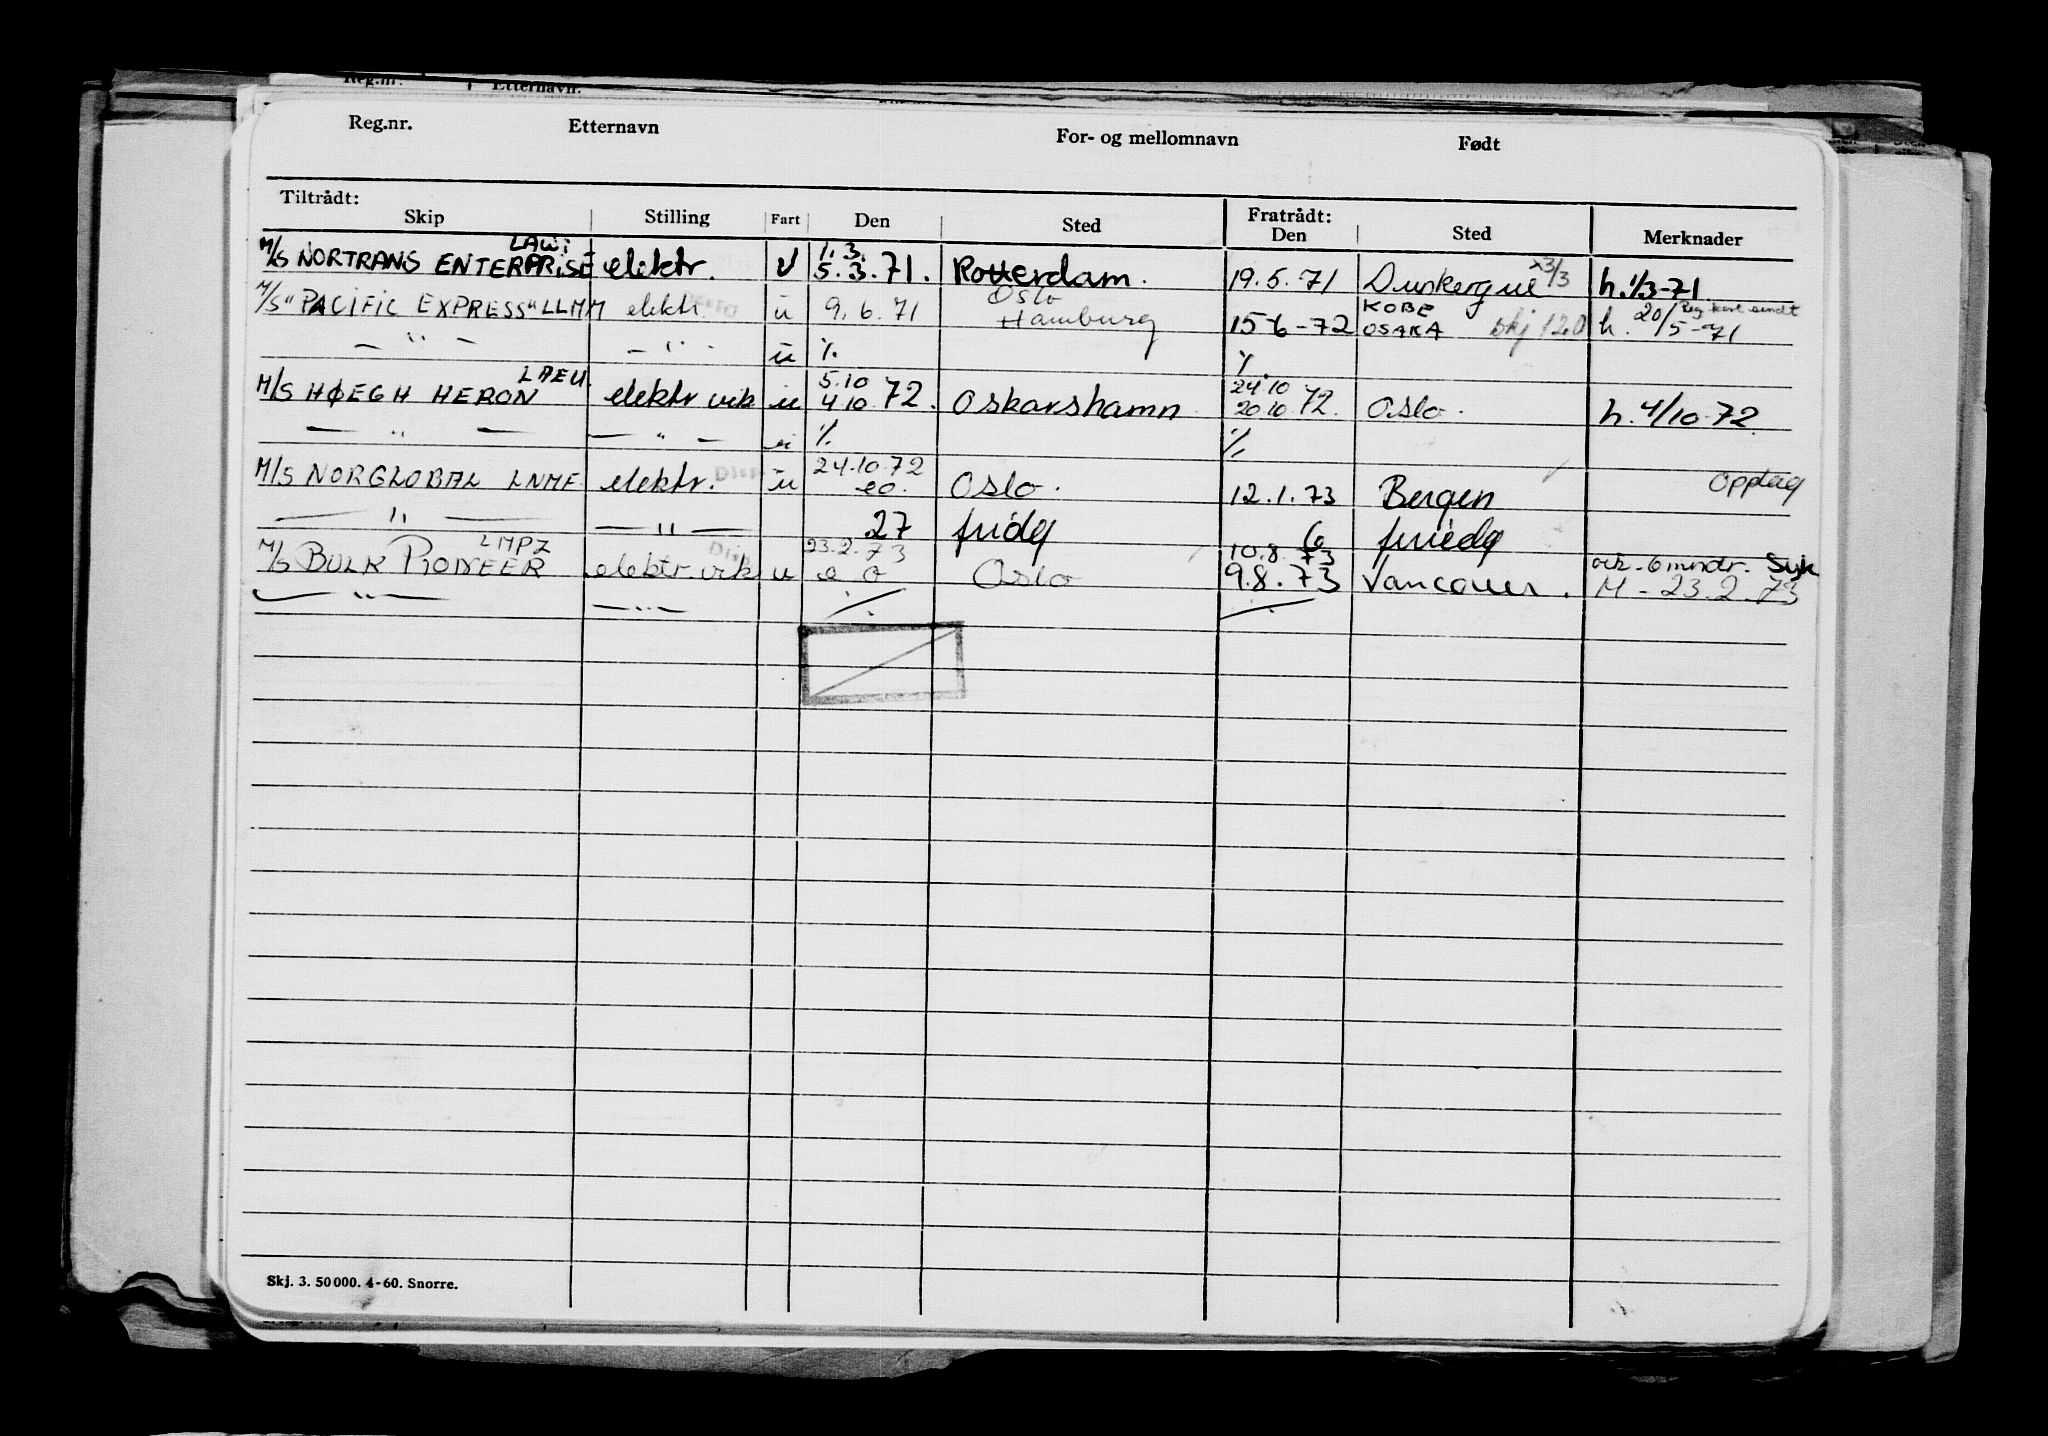 Reg.nr. Etternavn.
Reg.nr. Etternavn For- og mellomnavn Født
Tiltrådt: Fratrådt:
Skip Stilling Fart Den Sted Den Sted Merknader
LAWI 1.3. x3/3
M/S NORTRANS ENTERPRISE elektr. u 5.3.71. Rotterdam. 19.5.71 Dunkerque h. 1/3-71
Oslo KOBE Reg kort sendt
M/S "PACIFIC EXPRESS" LLMM elektr. u 9.6.71 Hamburg 15-6-72 OSAKA skj 120 h. 20/5-71
— " — — " — u % %
LAEU. 5.10 24.10
M/S HØEGH HERON elektr vik u 4.10.72. Oskarshamn 20.10.72. Oslo. h. 4/10-72
— " — — " — u % %
24.10.72
M/S NORGLOBAL LNMF elektr. u eo. Oslo. 12.1.73 Bergen Oppdag
— " — — " — 27 fridg 6 friedg
LMPZ 23.2.73 10.8.73 vik. 6 mndr. Syk
M/S BULK PIONEER elektr. vik u e o Oslo 9.8.73 Vancouver. M - 23.2.73
— " — — " — % %
Skj. 3. 50000. 4-60. Snorre.